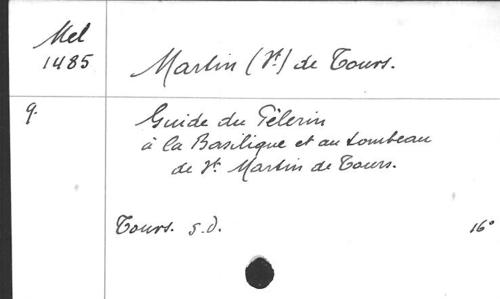 Mel
1485
Martin (St) de Tours.
9.
Guide du Pèlerin
à la Basilique et au tombeau
de St Martin de Tours.
Tours. s.d. 16°